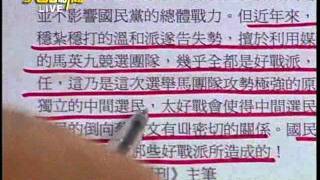 LIVE
並不影響國民黨的總體戰力。但近年來，
穩紮穩打的溫和派遂告失勢，擅於利用媒
的馬英九競選團隊，幾乎全都是好戰派，
任，這乃是這次選舉馬團隊攻勢極強的原
獨立的中間選民，太好戰會使得中間選民
的倒向 文有 密切的關係。國民
那些好戰派所造成的！
刊》主筆